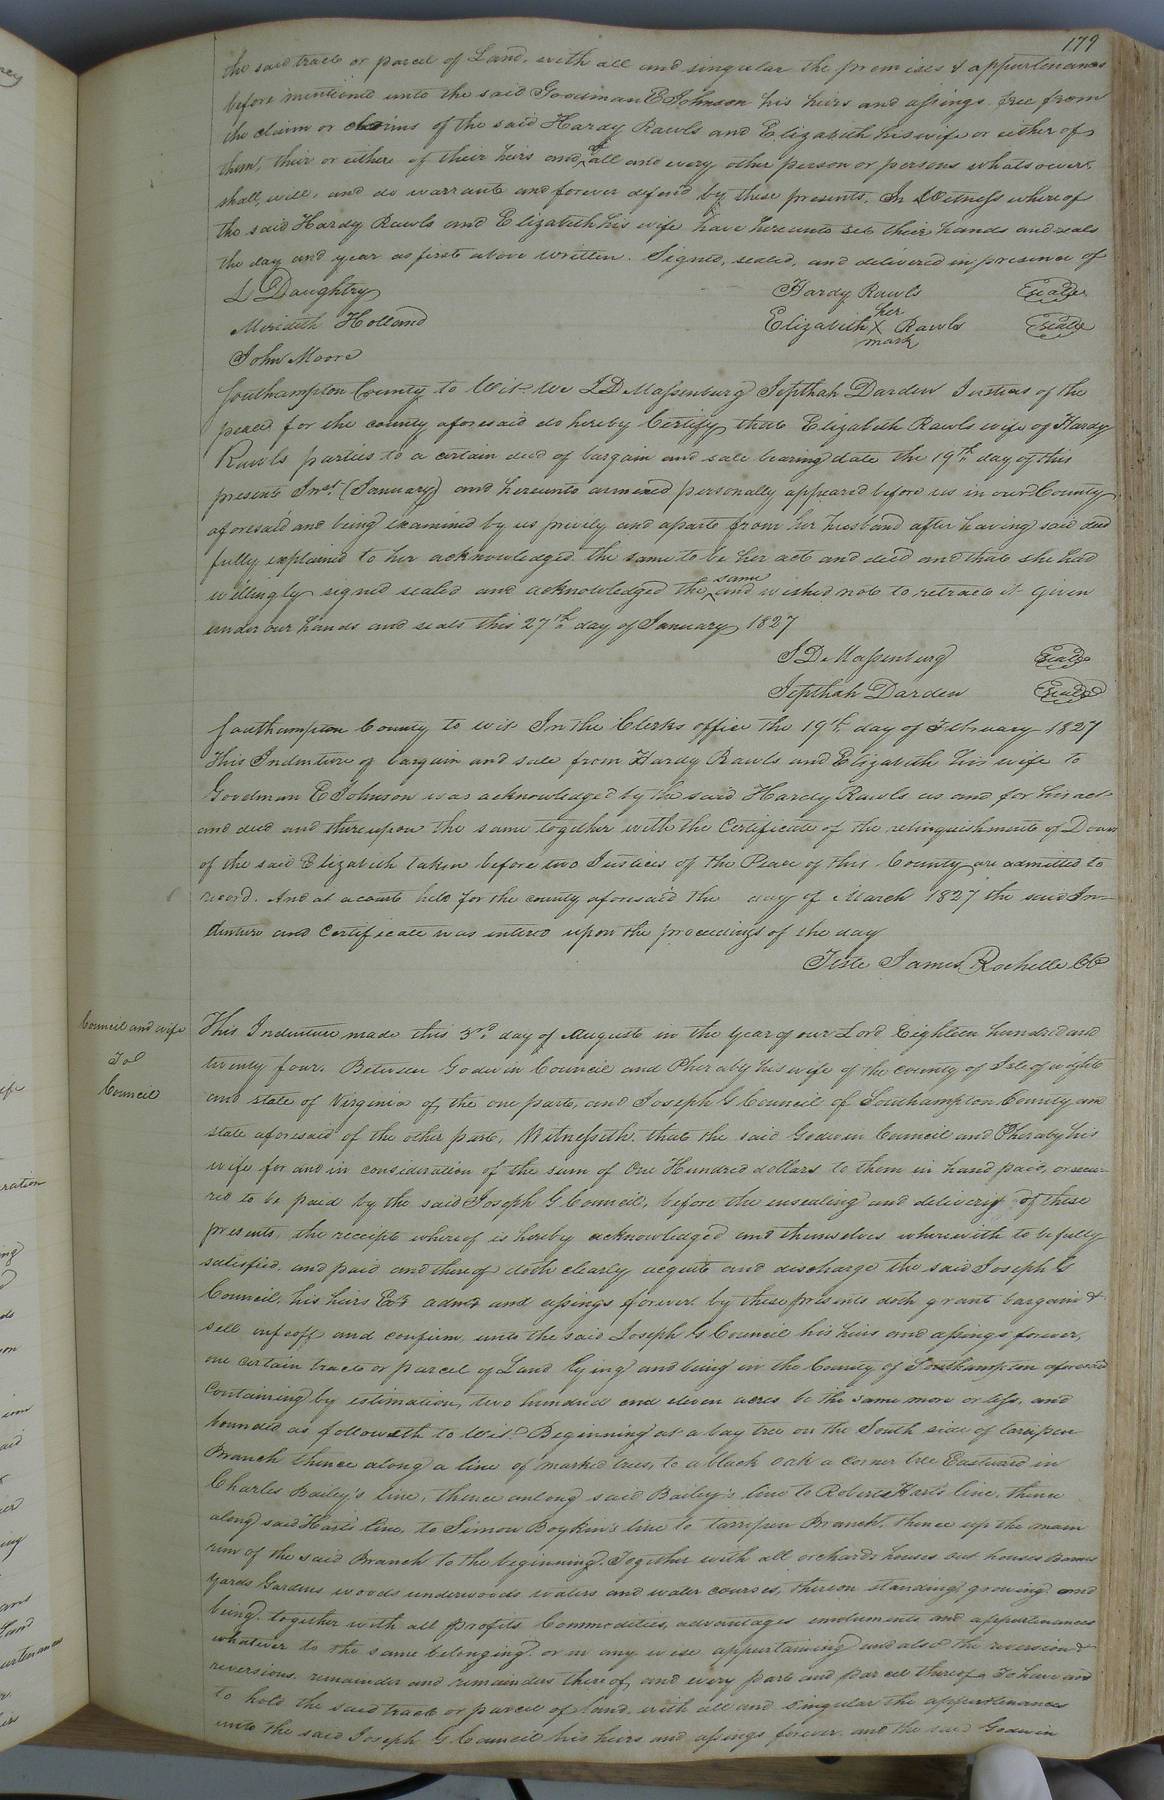 179
the said tract or parcel of Land, with all and singular the premises & appurtenances
before mentioned unto the said Goodman E Johnson his heirs and assings free from
the claim or claims of the said Hardy Rawls and Elizabeth his wife or either of
them, their or either of their heirs and of all and every other person or persons whatsoever,
shall, will, and do warrant and forever defend by these presents. In Witness whereof
the said Hardy Rawls and Elizabeth his wife have hereunto set their hands and seals
the day and year as first above written. Signed, sealed, and delivered in presence of
L Daughtry Hardy Rawls Seal
Merideth Holland Elizabeth her X mark Rawls Seal
John Moore
Southampton County to Wit We I D Massenburg Jepthah Darden Justices of the
peace for the county aforesaid do hereby Certify that Elizabeth Rawls wife of Hardy
Rawls parties to a certain deed of bargain and sale bearing date the 19th day of this
present Inst. (January) and hereunto annexed personally appeared before us in our County
aforesaid and being examined by us privily and aparte from her husband after having said deed
fully explained to her acknowledged the same to be her act and deed and that she had
willingly signed sealed and acknowledged the same and wished not to retract it given
under our hands and seals this 27th day of January 1827
I D Massenburg Seal
Jepthah Darden Seal
Southampton County to wit In the Clerks office the 19th day of February 1827
This Indenture of bargain and sale from Hardy Rawls and Elizabeth his wife to
Goodman E Johnson was acknowledged by the said Hardy Rawls as and for his act
and deed and thereupon the same together with the Certificate of the relinquishments of Dower
of the said Elizabeth taken before two Justices of the Peace of this County are admitted to
record. And at a court held for the county aforesaid the day of March 1827 the said In-
denture and Certificate was entered upon the proceedings of the day
Teste James Rochelle CC
Council and wife
To
Council
This Indenture made this 3rd day of August in the Year of our Lord Eighteen hundred and
twenty four. Between Godwin Council and Pheraby his wife of the County of Isle of wight
and state of Virginia of the one parte, and Joseph G Council of Southampton County and
state aforesaid of the other part, Witnesseth that the said Godwin Council and Pheraby his
wife for and in consideration of the sum of One Hundred dollars to them in hand paid, or secu-
red to be paid by the said Joseph G Council, before the ensealing and delivery of these
presents, the receipt whereof is hereby acknowledged and themselves wherewith to be fully
satisfied, and paid and thereof doth clearly acquit and discharge the said Joseph G
Council, his heirs Exors admrs and assings forever by these presents doth grant bargain &
sell enfeoff and confirm unto the said Joseph G Council his heirs and assings forever,
one certain tract or parcel of Land lying and being in the County of Southampton aforesaid
containing by estimation, two hundred and eleven acres be the same more or less, and
bounded as followeth to Wit. Beginning at a bay tree on the South side of tarripen
Branch thence along a line of marked trees, to a black oak a corner tree Eastward in
Charles Bailey's line, thence anlong said Bailey's line to Roberts Hart's line, thence
along said Hart's line, to Simon Boykin's line to tarripen Branch, thence up the main
run of the said Branch to the beginning. Together with all orchards houses out houses Barns
yards Gardens woods underwoods waters and water courses, thereon standing growing and
being, together with all profits Commodities, advantages emoluments and appurtenances
whatever to the same belonging or in any wise appertaining and also the reversion &
reversions, remainder and remainders thereof, and every part and parcel thereof. To have and
to hold the said tract or parcel of land with all and singular the appurtenances
unto the said Joseph G Council his heirs and assings forever and the said Godwin